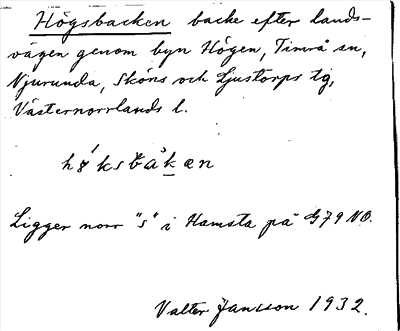 Högsbacken backe efter lands-
vägen genom byn Högen, Timrå sn,
Njurunda, Sköns och Ljustorps tg,
Västernorrlands l.
Ligger norr "s" i Hamsta på G79 NO.
Valter Jansson 1932.